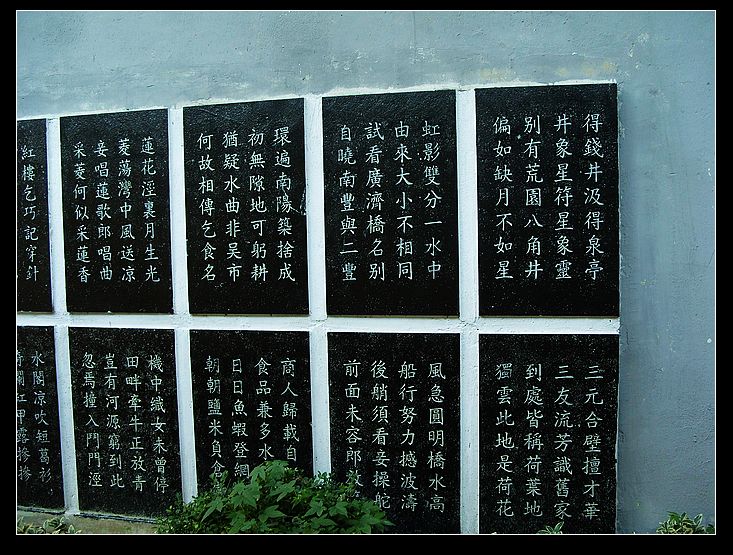 得錢井汲得泉亭
井象星符星象靈
別有荒園八角井
偏如缺月不如星
虹影雙分一水中
由來大小不相同
試看廣濟橋名別
自曉南豐與二豐
環遍南陽築捨成
初無隙地可躬耕
猶疑水曲非吴市
何故相傳乞食名
蓮花涇裏月生光
菱蕩灣中風送凉
妾唱蓮歌郎唱曲
采菱何似采蓮香
紅樓乞巧記穿針
三元合壁擅才華
三友流芳識舊家
到處皆稱荷葉地
獨雲此地是荷花
風急圓明橋水高
船行努力撼波濤
後艄須看妾操舵
前面未容郎
商人歸載自
食品兼多水
日日魚蝦登網
朝朝鹽米負倉
機中織女未曾停
田畔牽牛正放青
豈有河源窮到此
忽焉撞入鬥門涇
水閣凉吹短葛衫
紅甲露摻摻